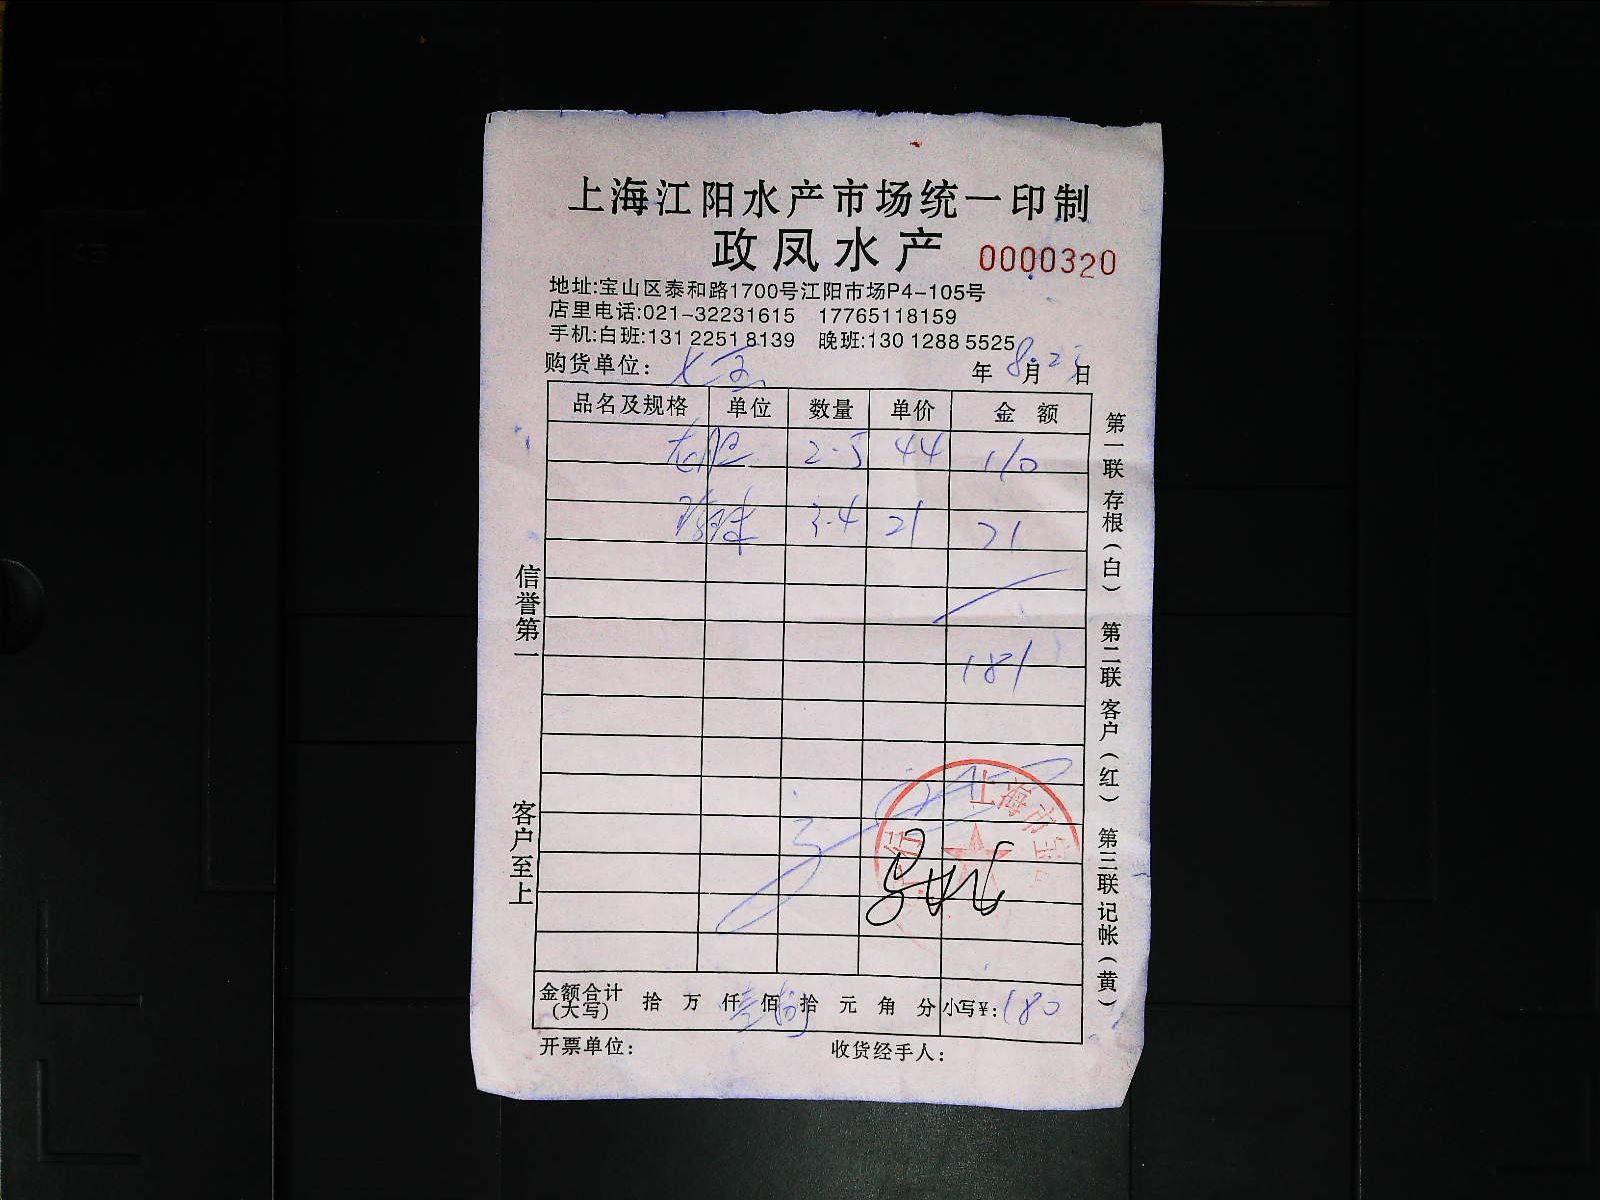 上海江阳水产市场统一印制
政凤水产 0000320
地址:宝山区泰和路1700号江阳市场P4-105号
店里电话:021-32231615 17765118159
手机:白班:131 2251 8139 晚班:130 1288 5525
购货单位: 年 8月 日
品名及规格 单位 数量 单价 金额
龙胆 2.5 44 110
珍珠 3.4 21 71
181
金额合计(大写) 拾 万 仟 壹 佰 捌 拾 元 角 分 小写¥:180
开票单位: 收货经手人:
信誉第一
客户至上
第一联 存根(白) 第二联 客户(红) 第三联 记帐(黄)
上海市宝